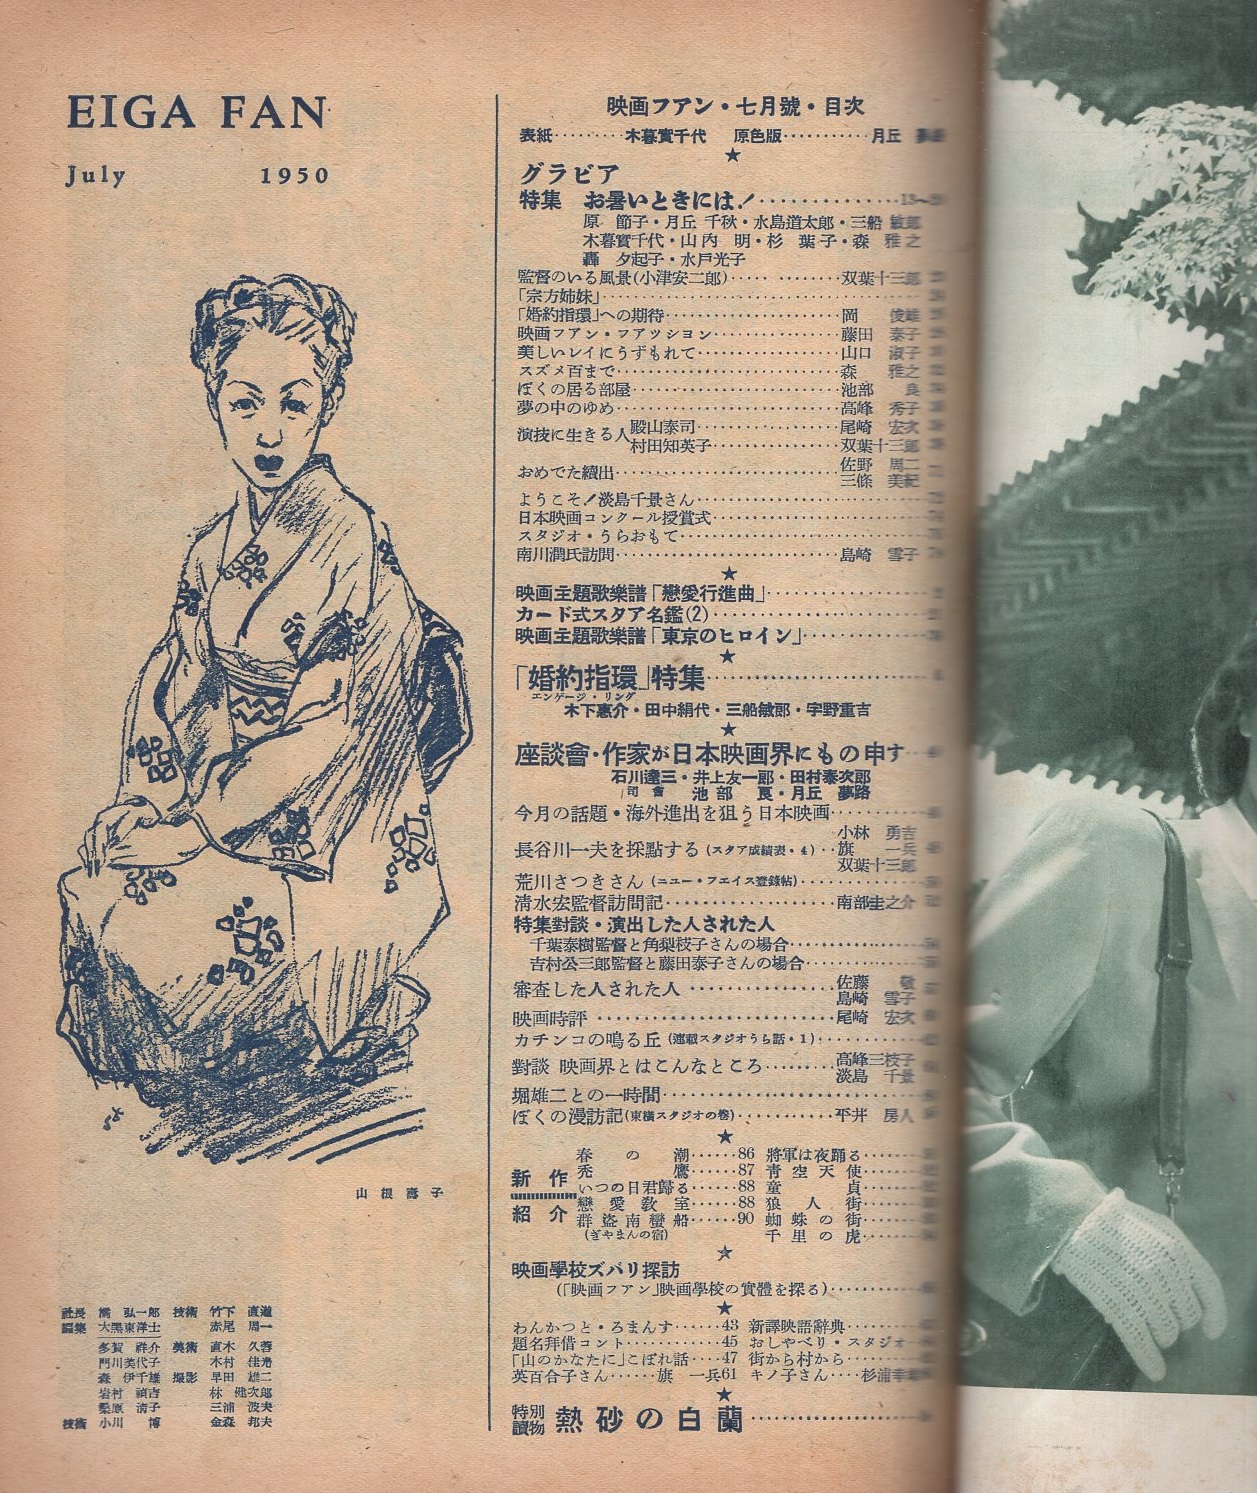 EIGA FAN
July 1950
山根壽子
社長 橘 弘一郎 技術 竹下 直道
編集 大黒東洋士 赤尾 周一
多賀 祥介 美術 直木 久蓉
門川美代子 木村
森 伊千雄 撮影 早田 雄二
岩村 林 健次郎
桑原 清子 三浦 波夫
技術 小川 博 金森 邦夫
映画フアン・七月號・目次
表紙………木暮實千代 原色版…………月丘
★
グラビア
特集 お暑いときには!…………13~
原 節子・月丘 千秋・水島道太郎・三船 敏郎
木暮實千代・山内 明・杉 葉子・森 雅之
轟 夕起子・水戸光子
監督のいる風景(小津安二郎)…………双葉十三郎
「宗方姉妹」…………
「婚約指環」への期待…………岡 俊雄
映画フアン・フアッション…………藤田 泰子
美しいレイにうずもれて…………山口 淑子
スズメ百まで…………森 雅之
ぼくの居る部屋…………池部 良
夢の中のゆめ…………高峰 秀子
演技に生きる人 殿山泰司…………尾崎 宏次
村田知英子…………双葉十三郎
おめでた續出…………佐野 周二
三條 美紀
ようこそ!淡島千景さん…………
日本映画コンクール授賞式…………
スタジオ・うらおもて…………
南川潤氏訪問…………島崎 雪子
★
映画主題歌樂譜「戀愛行進曲」…………
カード式スタア名鑑(2)…………
映画主題歌樂譜「東京のヒロイン」…………
★
「婚約指環」特集…………
エンゲージ・リング
木下惠介・田中絹代・三船敏郎・宇野重吉
★
座談會・作家が日本映画界にもの申す
石川達三・井上友一郎・田村泰次郎
司會 池部 良・月丘 夢路
今月の話題・海外進出を狙う日本映画…………
小林 勇吉
長谷川一夫を採點する(スタア成績表・4)‥旗 一兵
双葉十三郎
荒川さつきさん(ニュー・フエイス登録帖)…………
清水宏監督訪問記…………南部圭之介
特集對談・演出した人された人
千葉泰樹監督と角梨枝子さんの場合…………
吉村公三郎監督と藤田泰子さんの場合…………
審査した人された人…………佐藤 敬
島崎 雪子
映画時評…………尾崎 宏次
カチンコの鳴る丘(連載スタジオうら話・1)…………
對談 映画界とはこんなところ…………高峰三枝子
淡島 千景
堀雄二との一時間…………
ぼくの漫訪記(東横スタジオの巻)…………平井 房人
★
新作紹介
春の潮……86 將軍は夜踊る……
禿鷹……87 青空天使……
いつの日君歸る……88 童貞……
戀愛教室……88 狼人街……
群盗南蠻船……90 蜘蛛の街……
(ぎやまんの宿) 千里の虎……
★
映画學校ズバリ探訪
(「映画フアン」映画學校の實體を探る)…………
★
わんかつと・ろまんす……43 新譯映語辭典…………
題名拜借コント…………45 おしやべり・スタジオ
「山のかなたに」こぼれ話‥‥47 街から村から…………
英百合子さん……旗 一兵61 キノ子さん‥‥杉浦幸雄
★
特別讀物 熱砂の白蘭…………